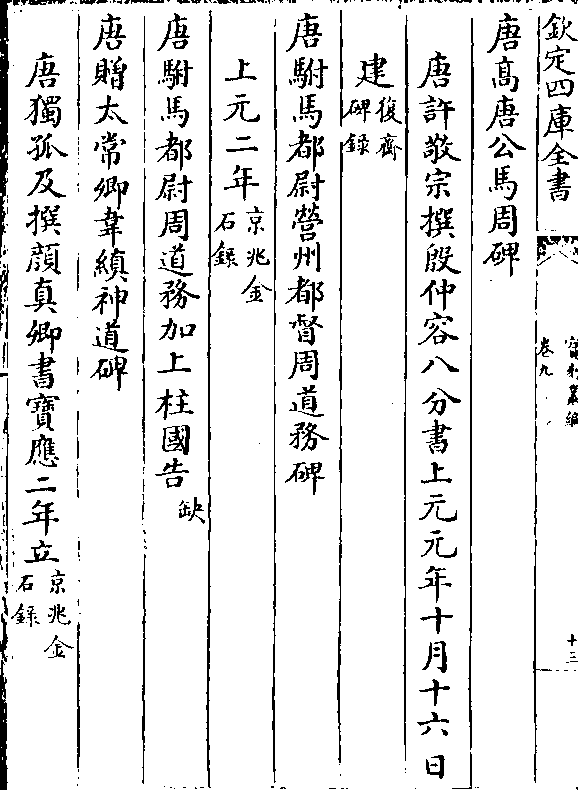 欽定四庫全書
卷九
十三
唐高唐公馬周碑
唐許敬宗撰殷仲容八分書上元元年十月十六日
建復齋碑錄
唐駙馬都尉營州都督周道務碑
上元二年京兆金石錄
唐駙馬都尉周道務加上柱國告缺
唐贈太常卿韋縝神道碑
唐獨孤及撰顏真卿書寶應二年立京兆金石錄